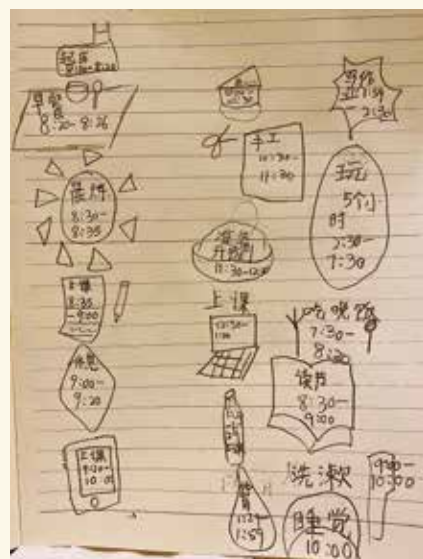 起床
8:10-8:20
早餐
8:20-8:26
晨炼
8:30-
8:35
上课
8:35
-9:00
休息
9:00-
9:20
上课
9:20-
10:00
手工
10:30-
11:30
11:30-12:00
上课
写作
业1:59
-2:30
玩
5个小
时
2:30-
7:30
吃晚饭
7:30-
8:30
读书
8:30-
9:00
洗漱
9:00-
10:00
睡觉
10:00